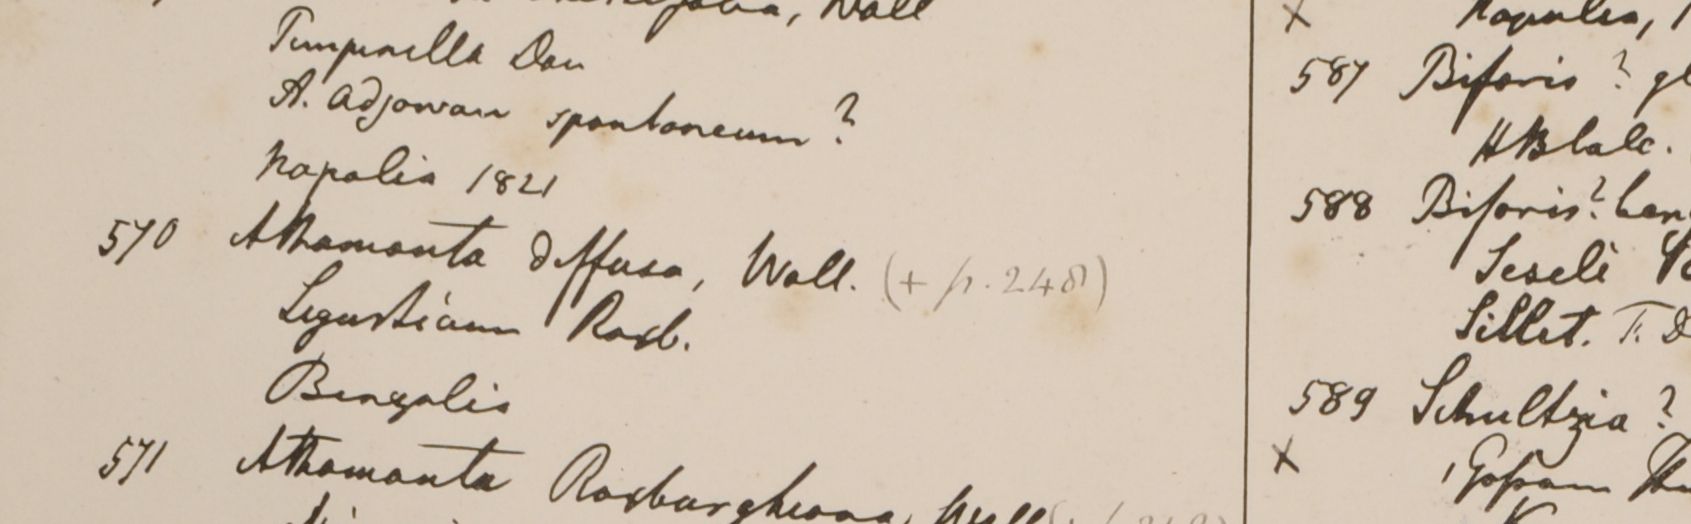 Wall
Pimpinella Don
A. Adjowan spontaneum?
Napalia 1821
570 Athamanta diffusa, Wall. (+ p. 248)
Ligusticum Roxb.
Bengalia
571 Athamanta Roxburghiana, Wall
X Napalia,
587 Biforis?
HB Calc.
588 Biforis?
Seseli
Sillet. F. D
589 Schultzia?
X Gosam